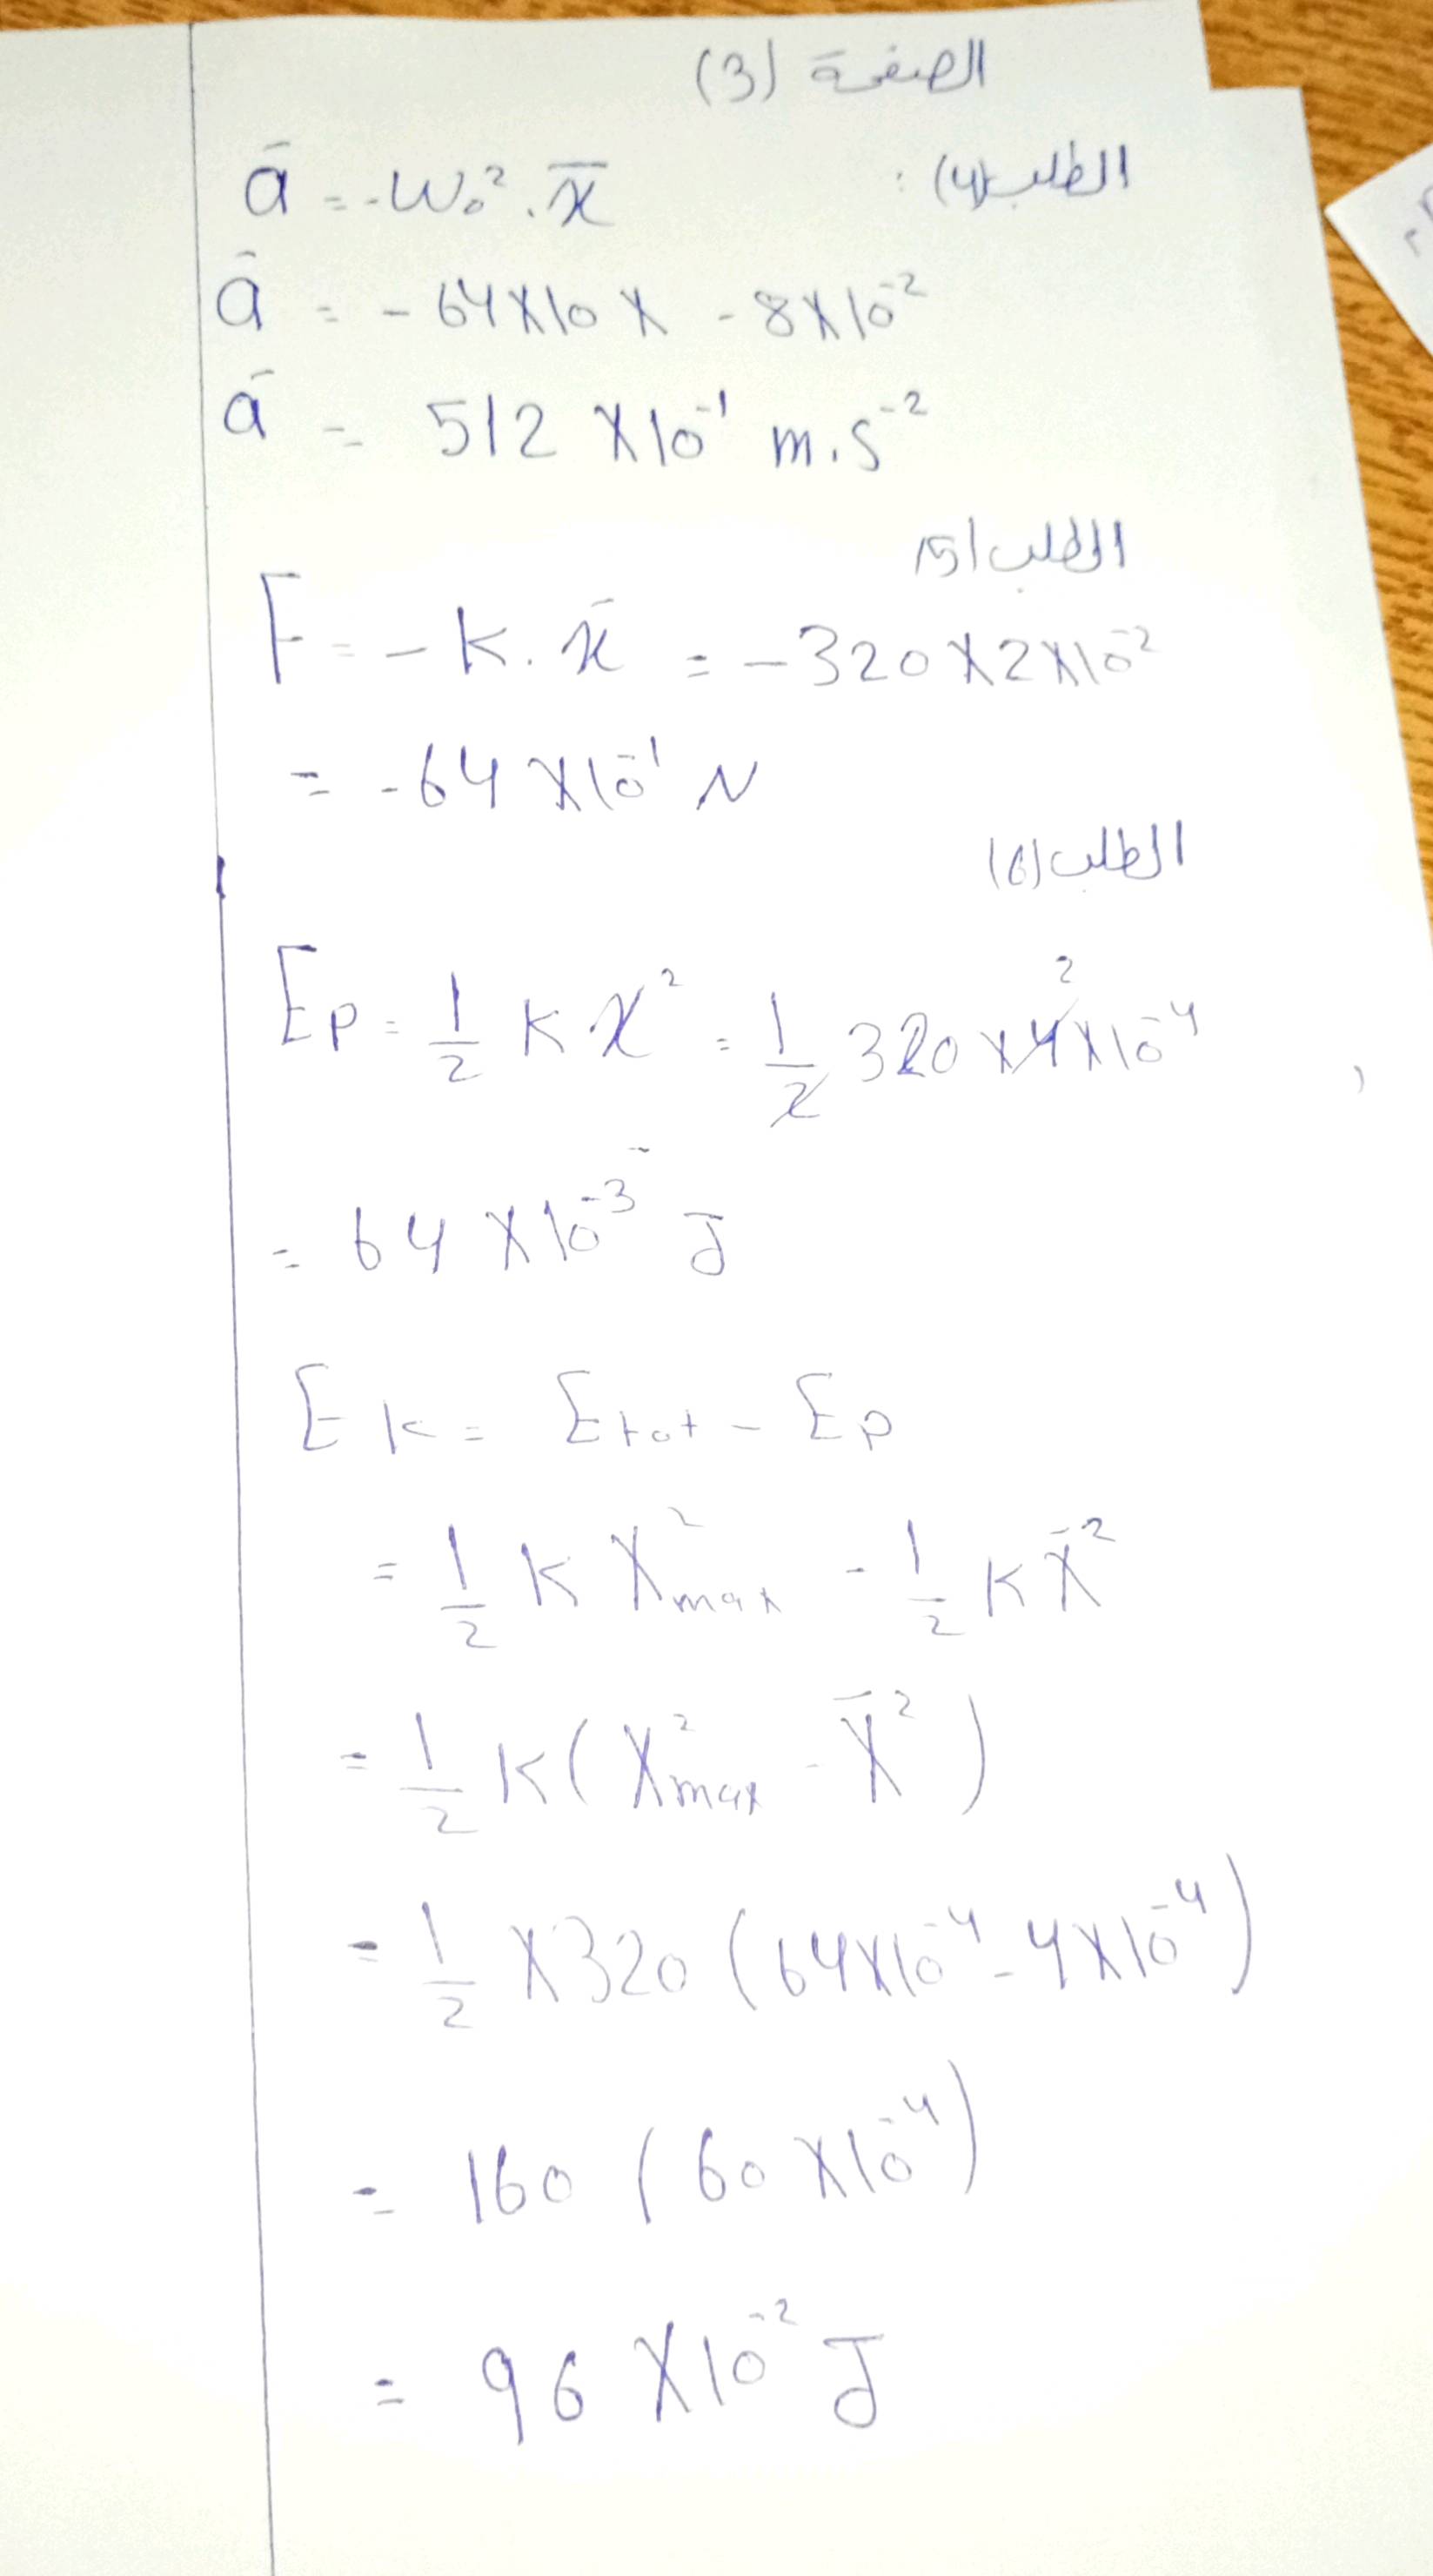 الصفحة (3)
الطلب (4) :
ā = -ω₀² . x̄
ā = - 64×10 × - 8×10⁻²
ā = 512 ×10⁻¹ m.s⁻²
الطلب (5)
F = - K . x̄ = - 320×2×10⁻²
= - 64 ×10⁻¹ N
الطلب (6)
Ep = 1/2 K x² = 1/2 320 ×4×10⁻⁴
2
= 64 ×10⁻³ J
Ek = Etot - Ep
= 1/2 K X²max - 1/2 K X̄²
= 1/2 K ( X²max - X̄² )
= 1/2 ×320 ( 64×10⁻⁴ - 4×10⁻⁴ )
= 160 ( 60 ×10⁻⁴ )
= 96 ×10⁻² J